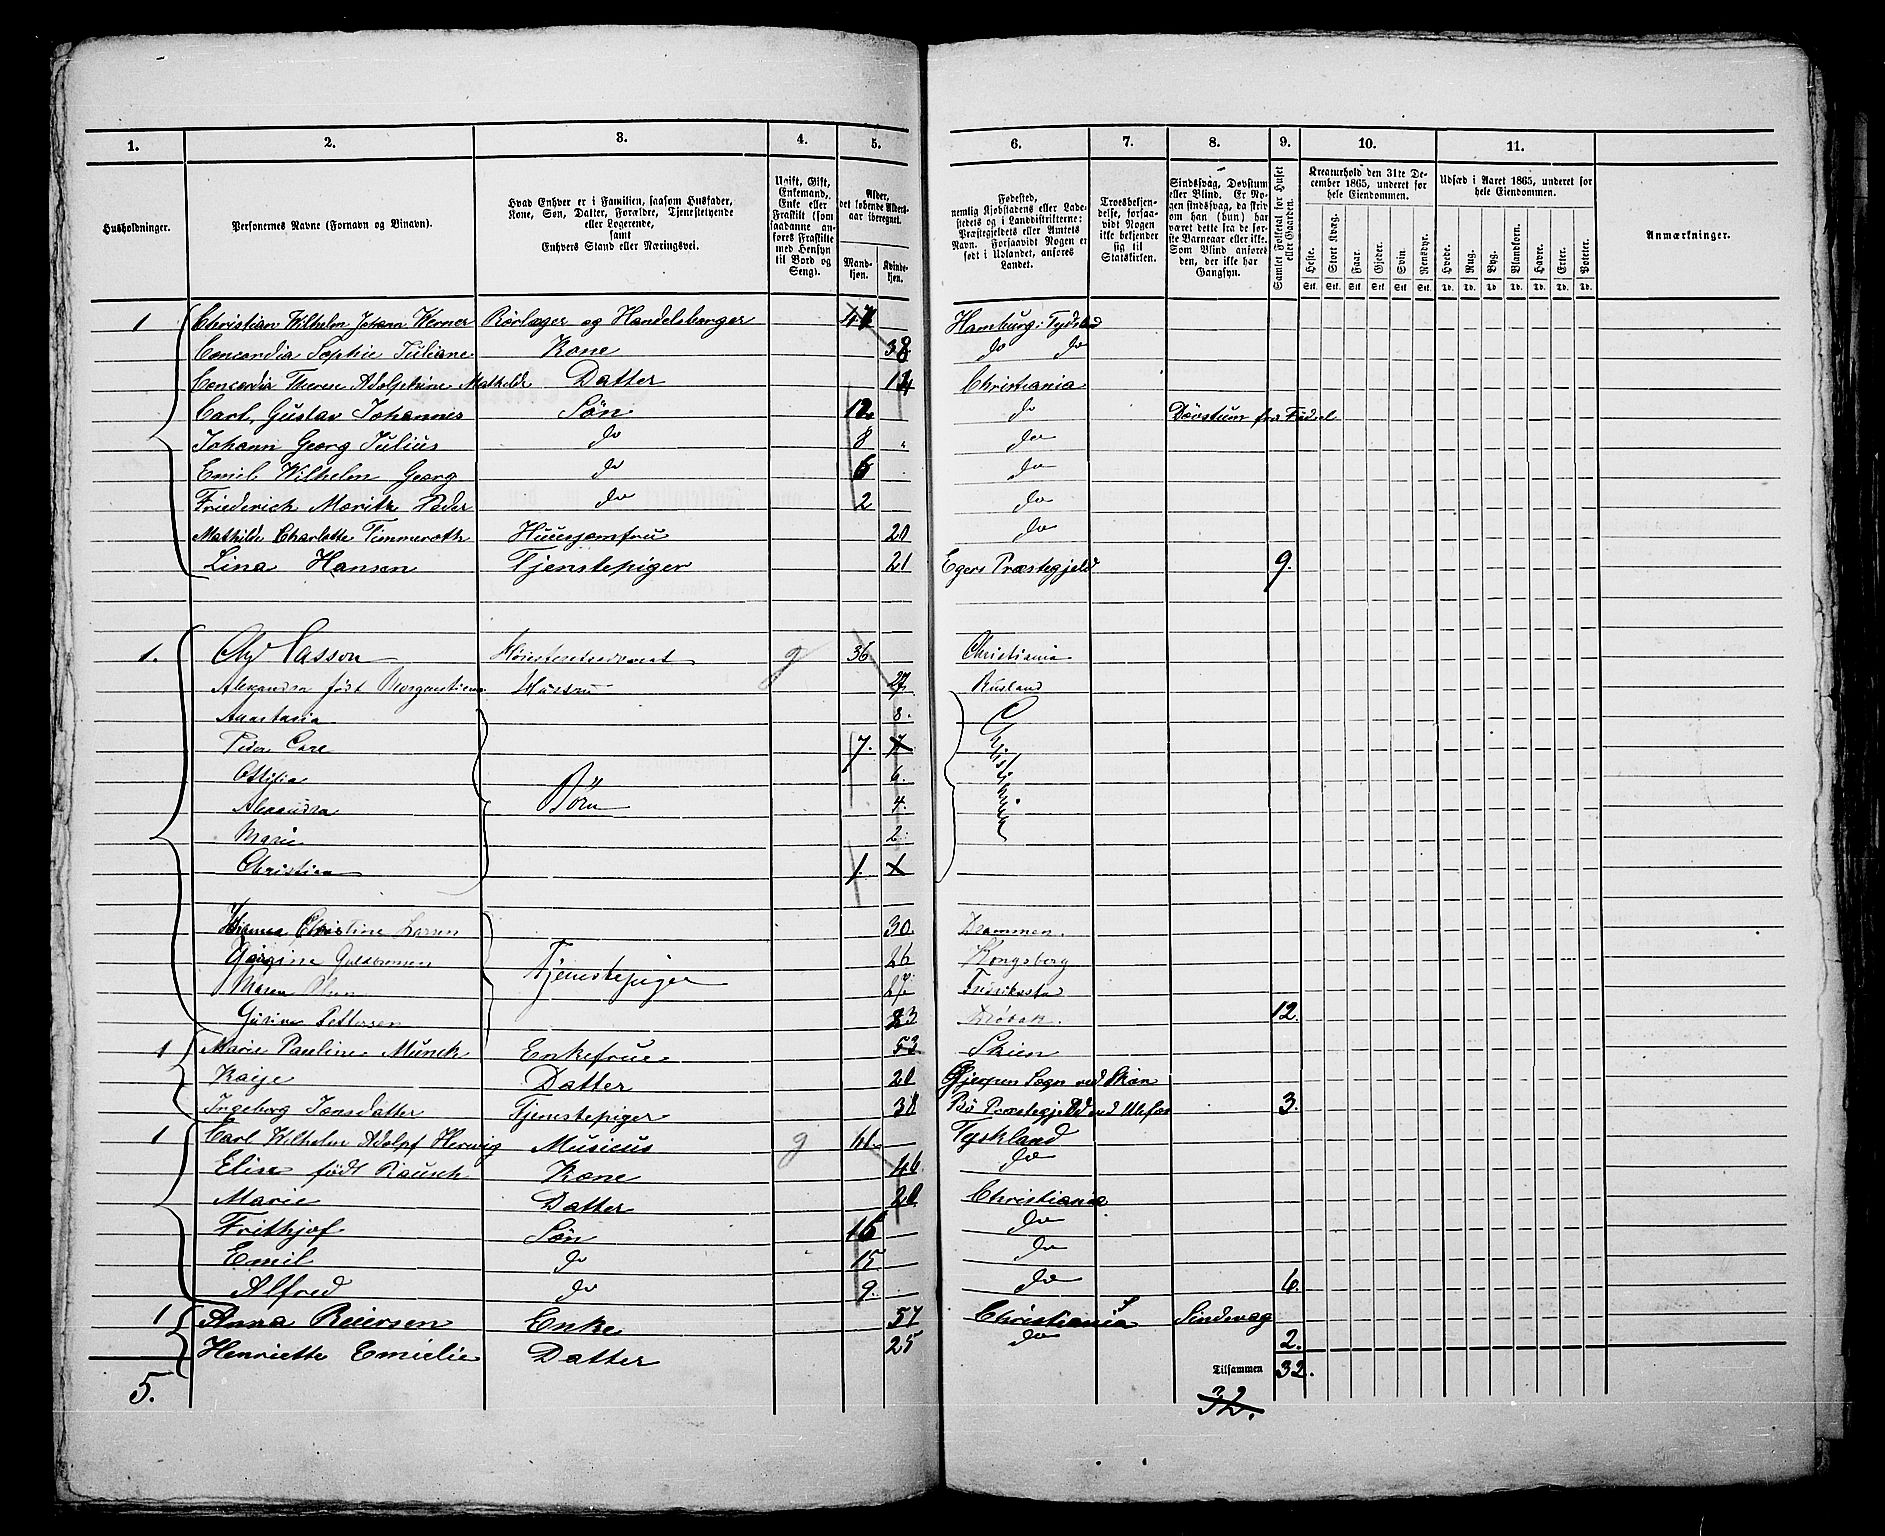 1. 2. 3. 4. 5. 6. 7. 8. 9. 10. 11.
Husholdninger.
Personernes Navne (Fornavn og Binavn).
Hvad Enhver er i Familien, saasom Husfader, Kone, Søn, Datter, Forældre, Tjenestetyende eller Logerende, samt Enhvers Stand eller Næringsvei.
Ugift, Gift, Enkemand, Enke eller Fraskilt (som saadanne anføres Fraskilte med Hensyn til Bord og Seng).
Alder, det løbende Aldersaar iberegnet.
Mandkjøn. Kvindekjøn.
Fødested, nemlig Kjøbstadens eller Ladestedets og i Landdistrikterne: Præstegjeldets eller Amtets Navn. Forsaavidt Nogen er født i Udlandet, anføres Landet.
Troesbekjendelse, forsaavidt Nogen ikke bekjender sig til Statskirken.
Sindssvag, Døvstum eller Blind. Er Nogen sindssvag, da skriv om han (hun) har været dette fra de første Barneaar eller ikke. Som Blind ansøres den, der ikke har Gangsyn.
Samlet Folketal for Huset eller Gaarden.
Kreaturhold den 31te December 1865, underet for hele Eiendommen.
Heste. Stort Kvæg. Faar. Gjeder. Svin. Rensdyr.
Udsæd i Aaret 1865, underet for hele Eiendommen.
Hvede. Rug. Byg. Blandkorn. Havre. Erter. Poteter.
Anmærkninger.
Stk. Stk. Stk. Stk. Stk. Stk. Td. Td. Td. Td. Td. Td. Td.
1 Christian Wilhelm Johann Werner Rørlæger og Handelsborger 47 Hamburg i Tydskl
Concordia Sophie Juliane Kone 38 do do
Concordia Therese Adolphine Mathilde Datter 14 Christiania
Carl, Gustav Johannes Søn 12 do Døvstum fra Fødsel
Johann Georg Julius do 8 do
Emil Wilhelm Georg do 6 do
Friederich Moritz Peder do 2 do
Mathilde Charlotte Timmeroth Huusjomfru 20 do
Lina Hansen Tjenstepiger 21 Egers Præstegjeld 9.
1. Chr Casson Høiesteretsadvocat g 36 Christiania
Alexandra født Morgenstierne Husfru 27 Rusland
Anastasia 8.
Peder Care 7. 7
Ottilia 6
Alexandra Børn 4. Christiania
Marie 2.
Christian 1. 1
Christine Larsen 30. Drammen.
Gørgine Guldbrensen 26 Kongsberg
Maren Olsen Tjenstepiger 27. Fredriksstad
Gurine Pettersen 23 Drøbak. 12.
1 Marie Pauline Munck Enkefrue 53 Skien
Kaije Datter 20 Gjerpen Sogn ved Skien
Ingeborg Jonsdatter Tjenstepiger 38 Bø Præstegjeld ved Ulefos 3.
1 Carl Wilhelm Adolpf Herwig Musicus g 61 Tyskland
Elise født Rausch Kone 46. do
Marie Datter 20 Christiania
Frithjof Søn 16 do
Emil do 15 do
Alfred do 9. do 6.
1 Anna Reiersen Enke 57 Christiania Sindsvag
Henriette Emielie Datter 25 do 2.
5.
Tilsammen 32.
32.